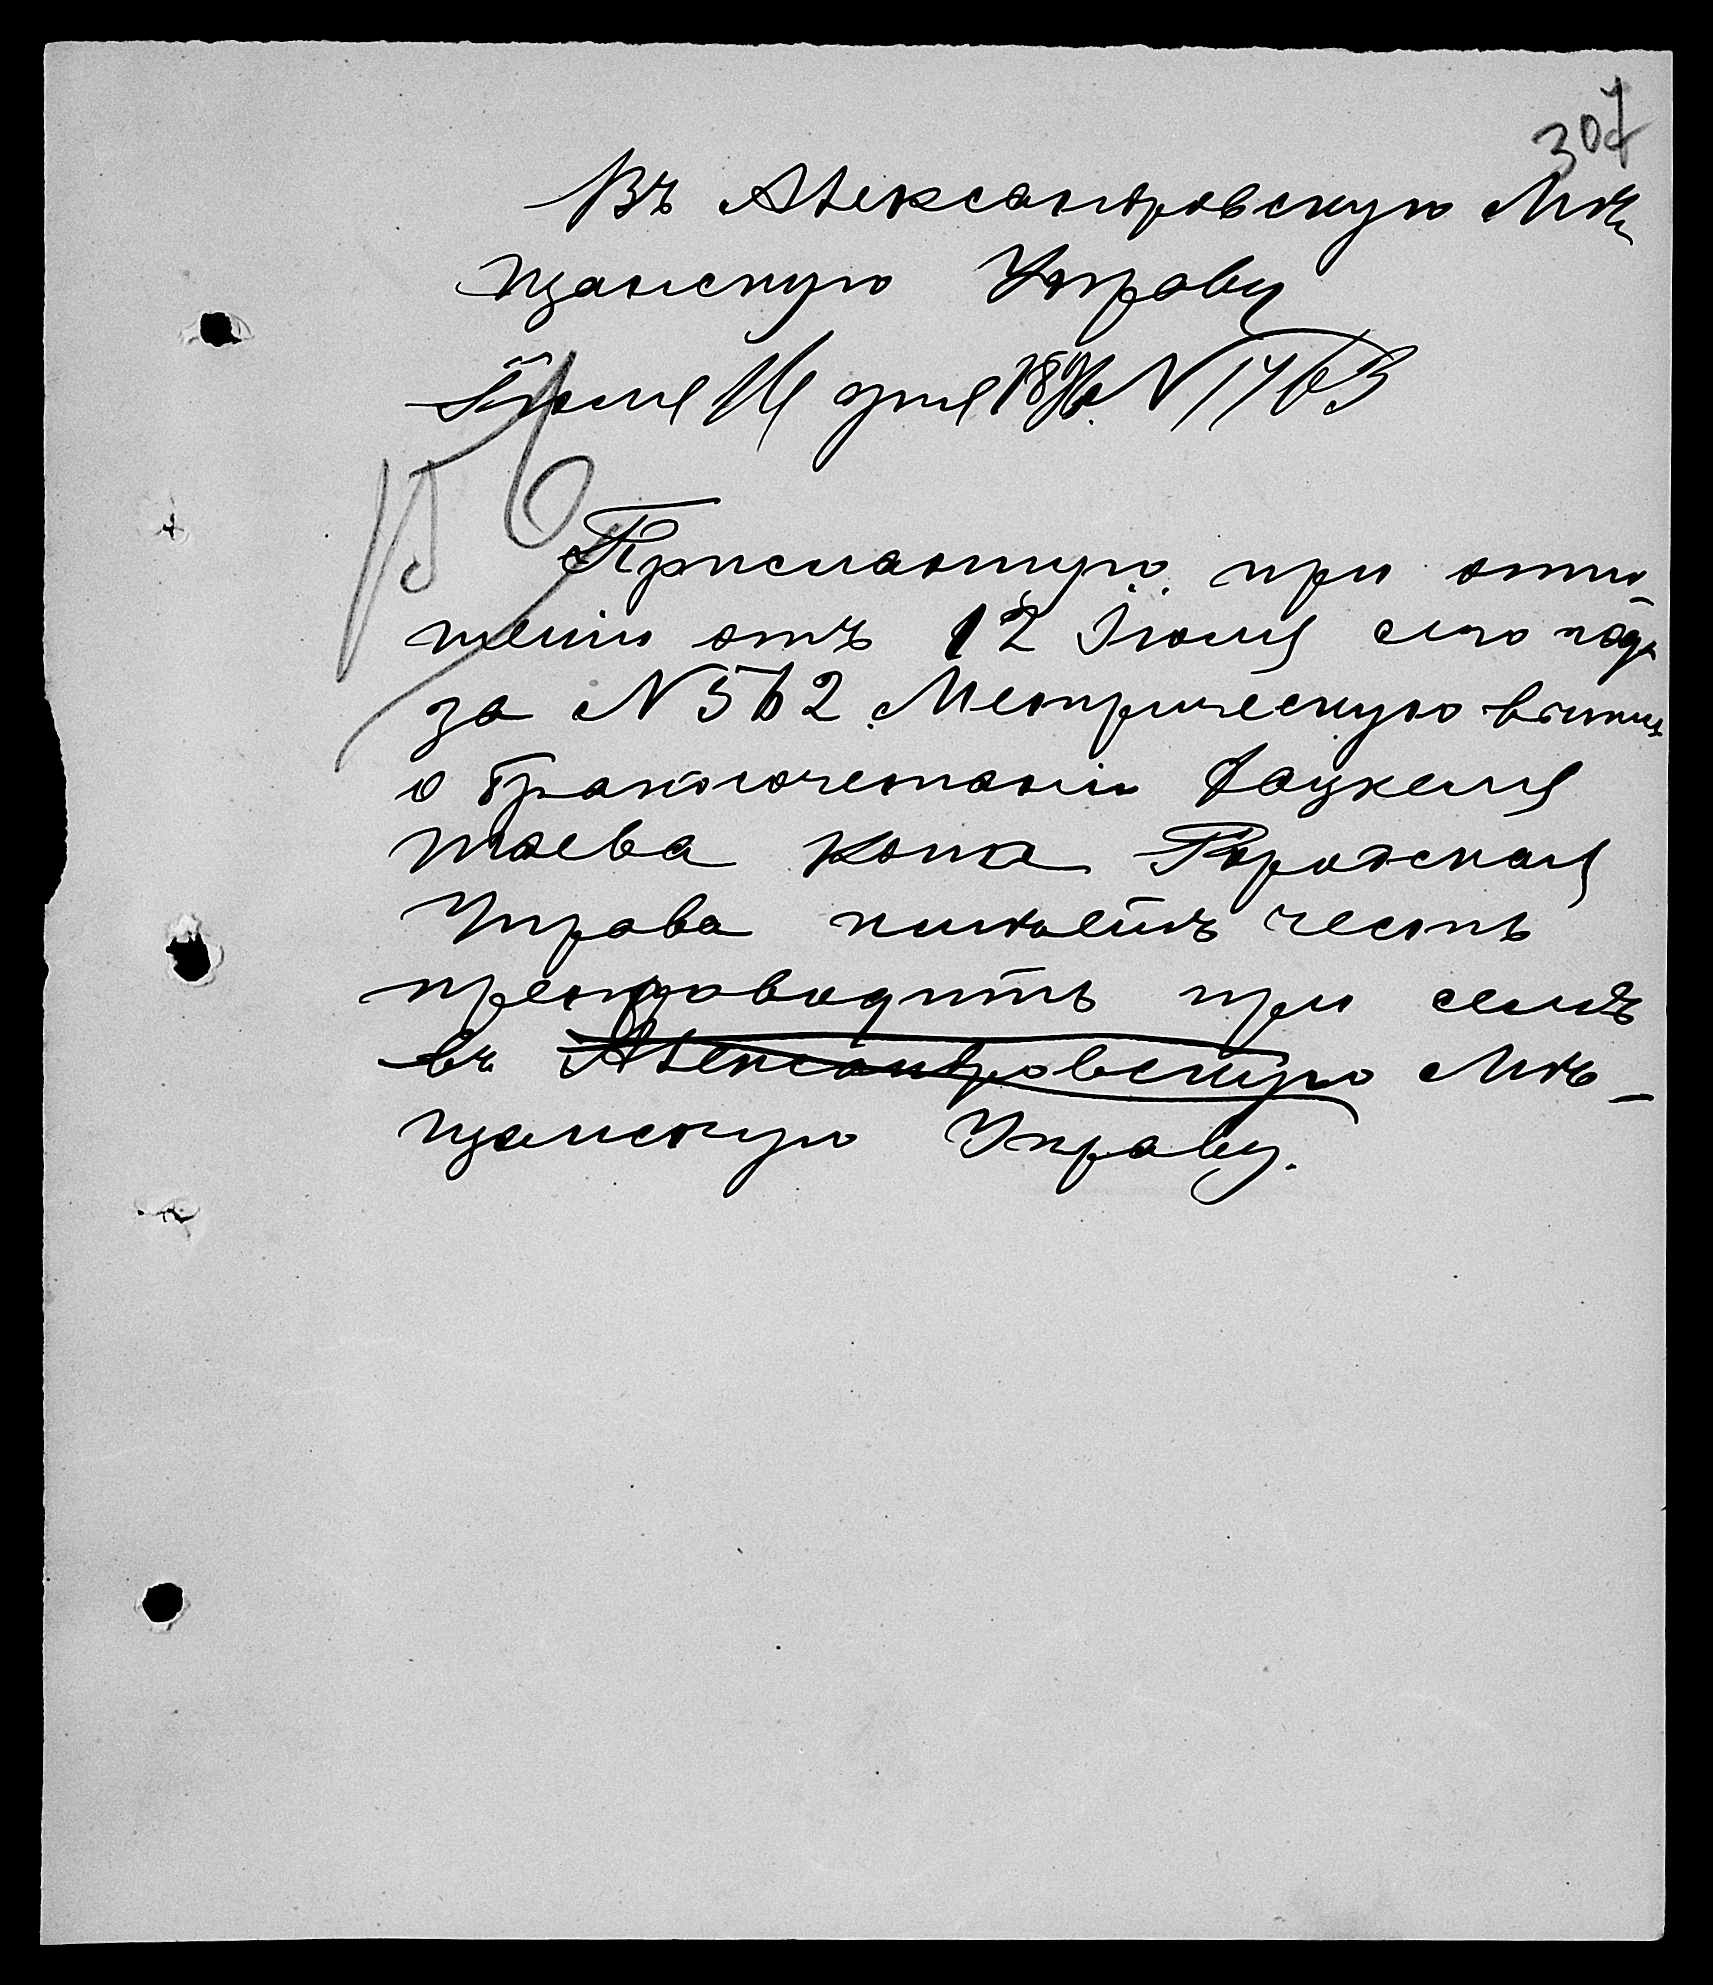 307
Въ Александровскую Мѣ
щанскую Управу
Іюля 16 дня 1896. N 1763
Присланную при отно
шеніи отъ 12 Іюля сего года
за N 562 Метрическую выпись
о бракосочетаніи
Кона Городская
Управа имѣетъ честь
препроводить при семъ
въ Александровскую Мѣ-
щанскую Управу.